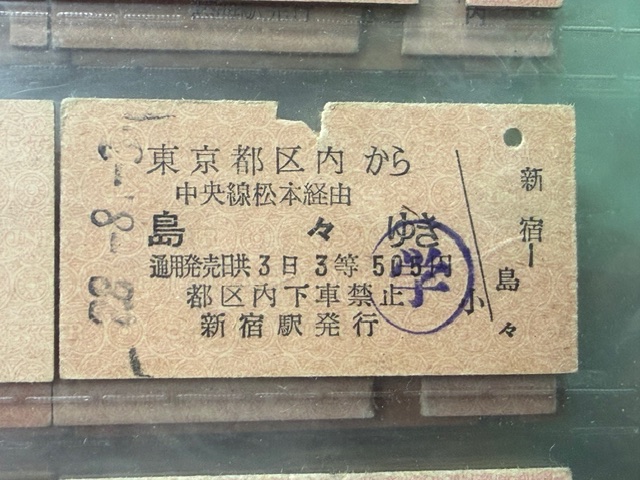 東京都区内から
中央線松本経由
島々ゆき
通用発売日共3日3等 505円
都区内下車禁止
新宿駅発行
28-8.-3
学
小
新宿ー島々